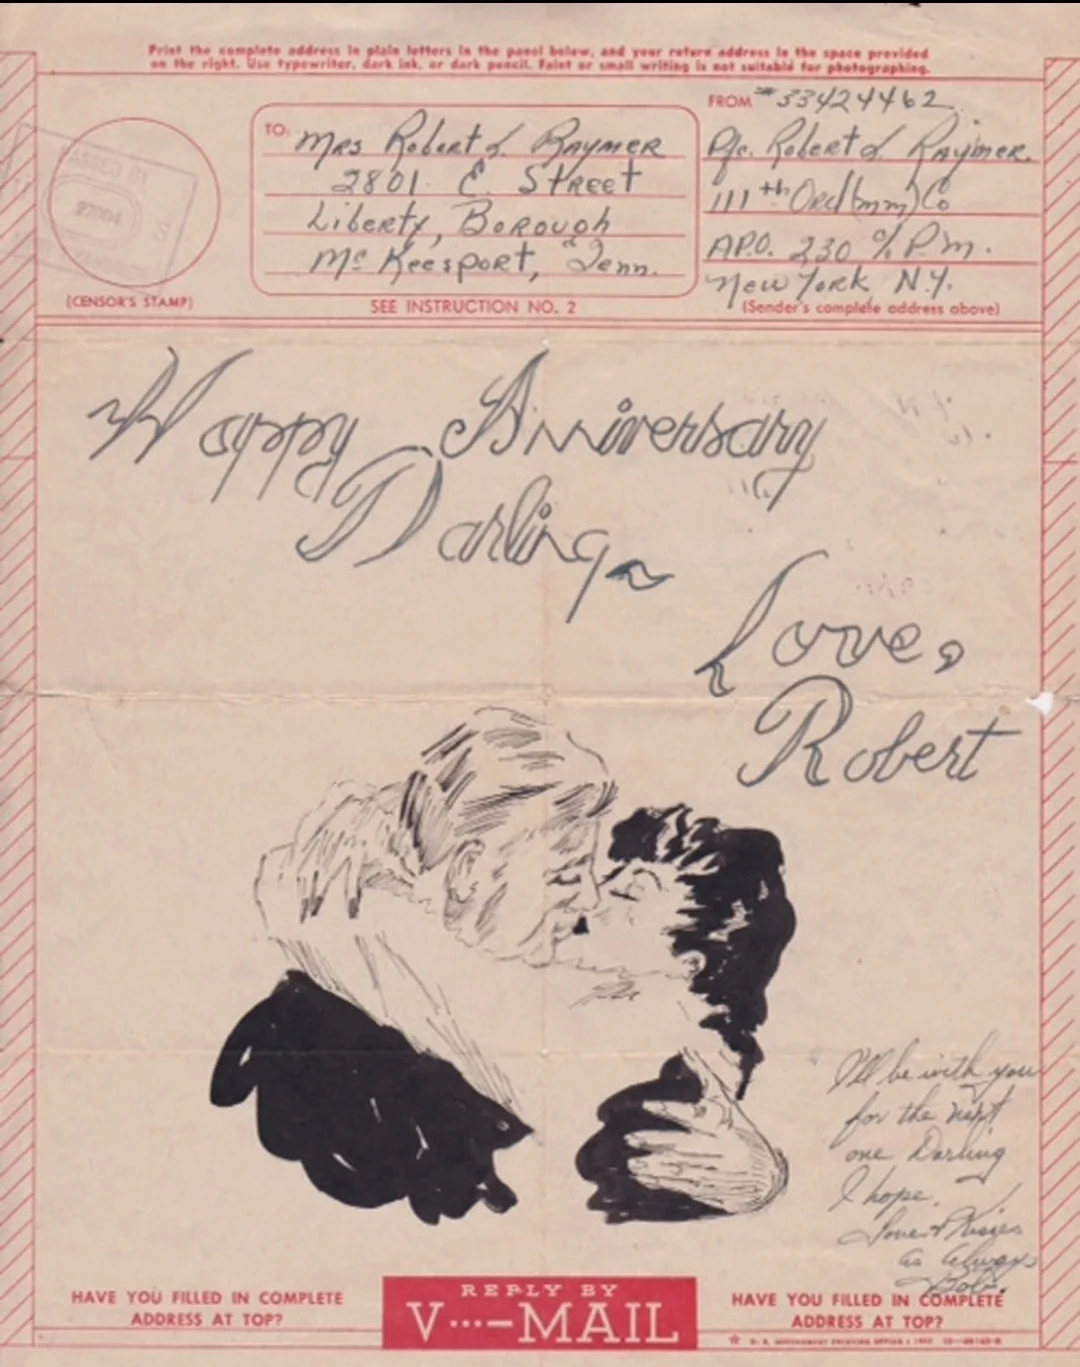 Print the complete address in plain letters in the panel below, and your return address in the space provided
on the right. Use typewriter, dark ink, or dark pencil. Faint or small writing is not suitable for photographing.
PASSED BY
(CENSOR'S STAMP)
TO:
Mrs Robert L. Raymer
2801 E. Street
Liberty, Borough
Mc Keesport, Penn.
SEE INSTRUCTION NO. 2
FROM #33424462
Pfc. Robert L. Raymer.
111th Ord (mm) Co
A.P.O. 230 % P.M.
New York, N.Y.
(Sender's complete address above)
Happy Anniversary
Darling ~
Love,
Robert
I'll be with you
for the next
one Darling
I hope.
Love & Kisses
as always
Bob.
HAVE YOU FILLED IN COMPLETE
ADDRESS AT TOP?
REPLY BY
V···—MAIL
HAVE YOU FILLED IN COMPLETE
ADDRESS AT TOP?
U. S. GOVERNMENT PRINTING OFFICE